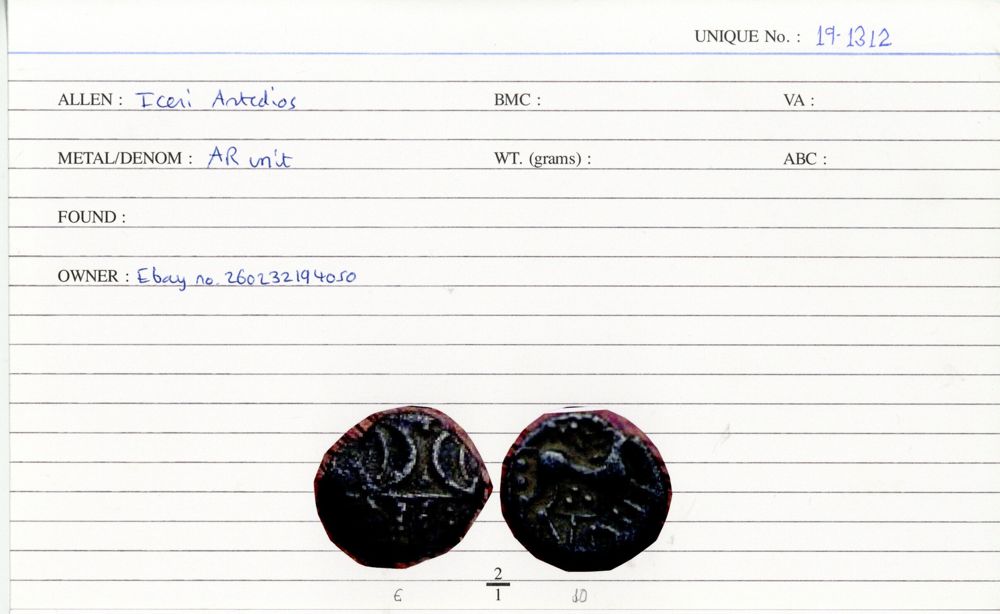 UNIQUE No. : 19-1312
ALLEN : Iceni Antedios BMC : VA :
METAL/DENOM : AR unit WT. (grams) : ABC :
FOUND :
OWNER : Ebay no. 260232194050
2
1